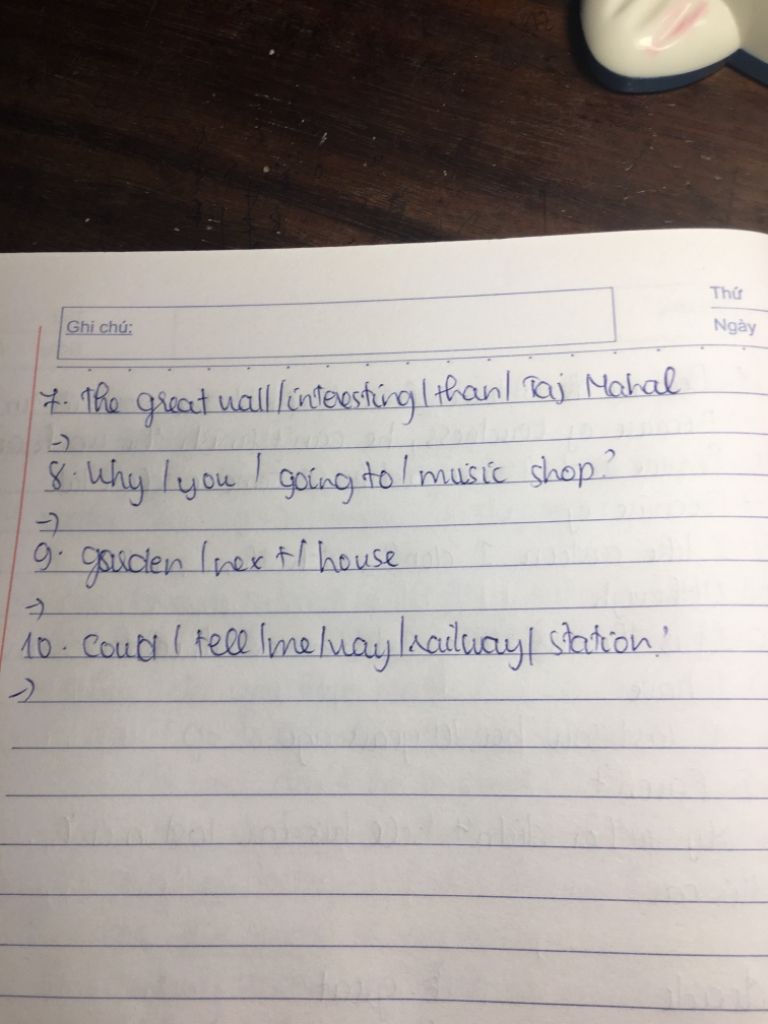 Thứ
Ghi chú:
Ngày
7. The great wall/interesting/than/Taj Mahal
->
8. Why/you/going to/music shop?
->
9. garden/next/house
->
10. Could/tell/me/way/railway/station?
->